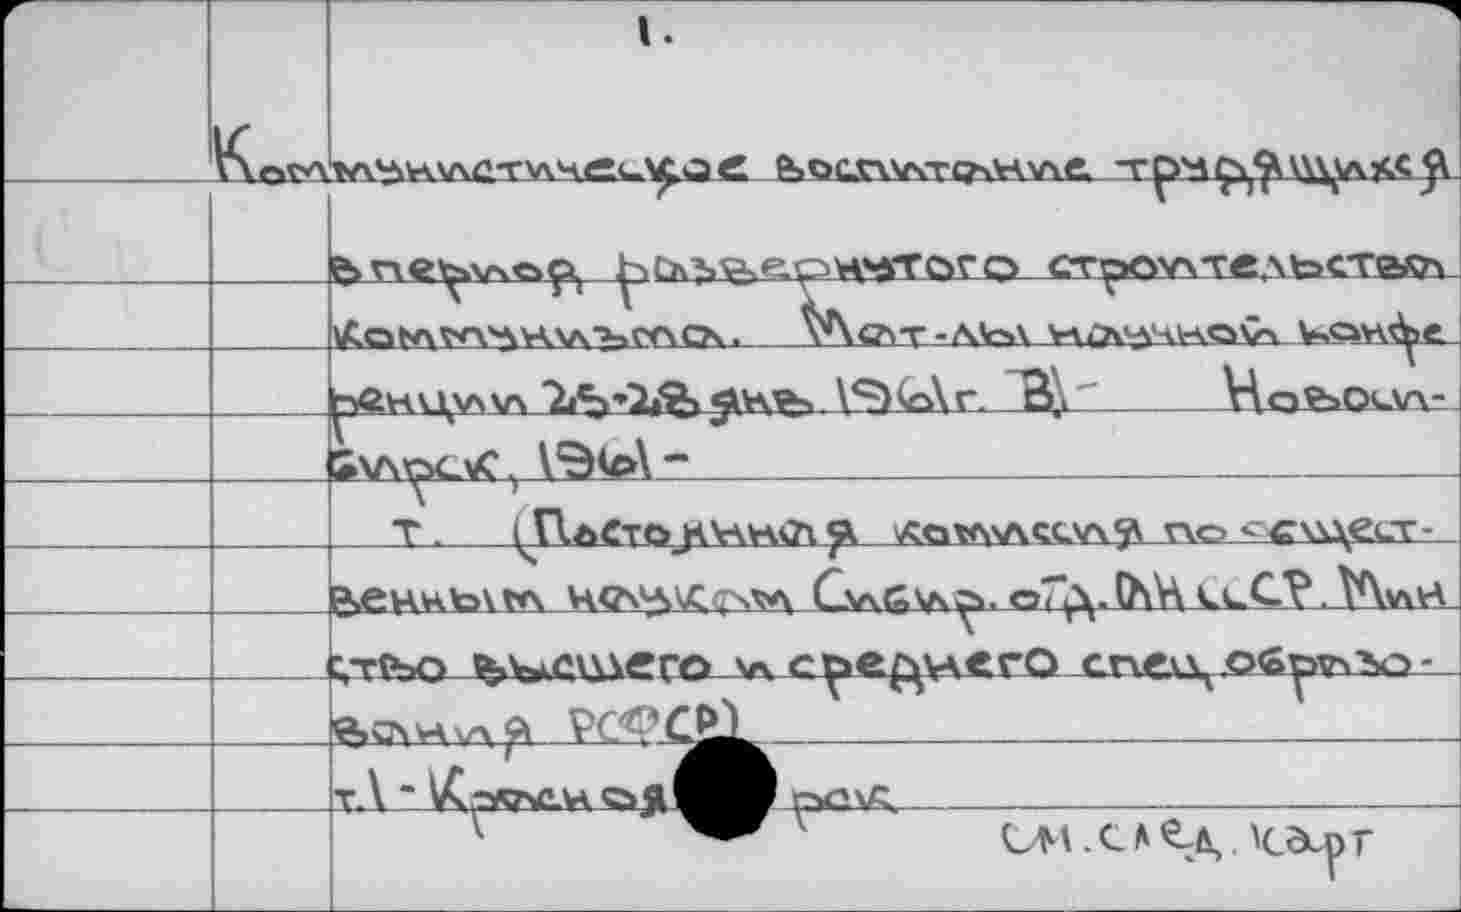 1.
Коммунистическое воспитание трудящихся
в период развернутого строительства
коммунизма. Мат-лы научной конфе
ренции 25-28 янв. 1961г. В,- Новоси-
бирск, 1961-
т. (Постоянная комиссия по сущест-
венным наукам Сибир. отд. АН СССР. Мин
ство высшего и средного спец, образо-
вания РСФСР)
т.1 - Красноя рск
см. след. карт